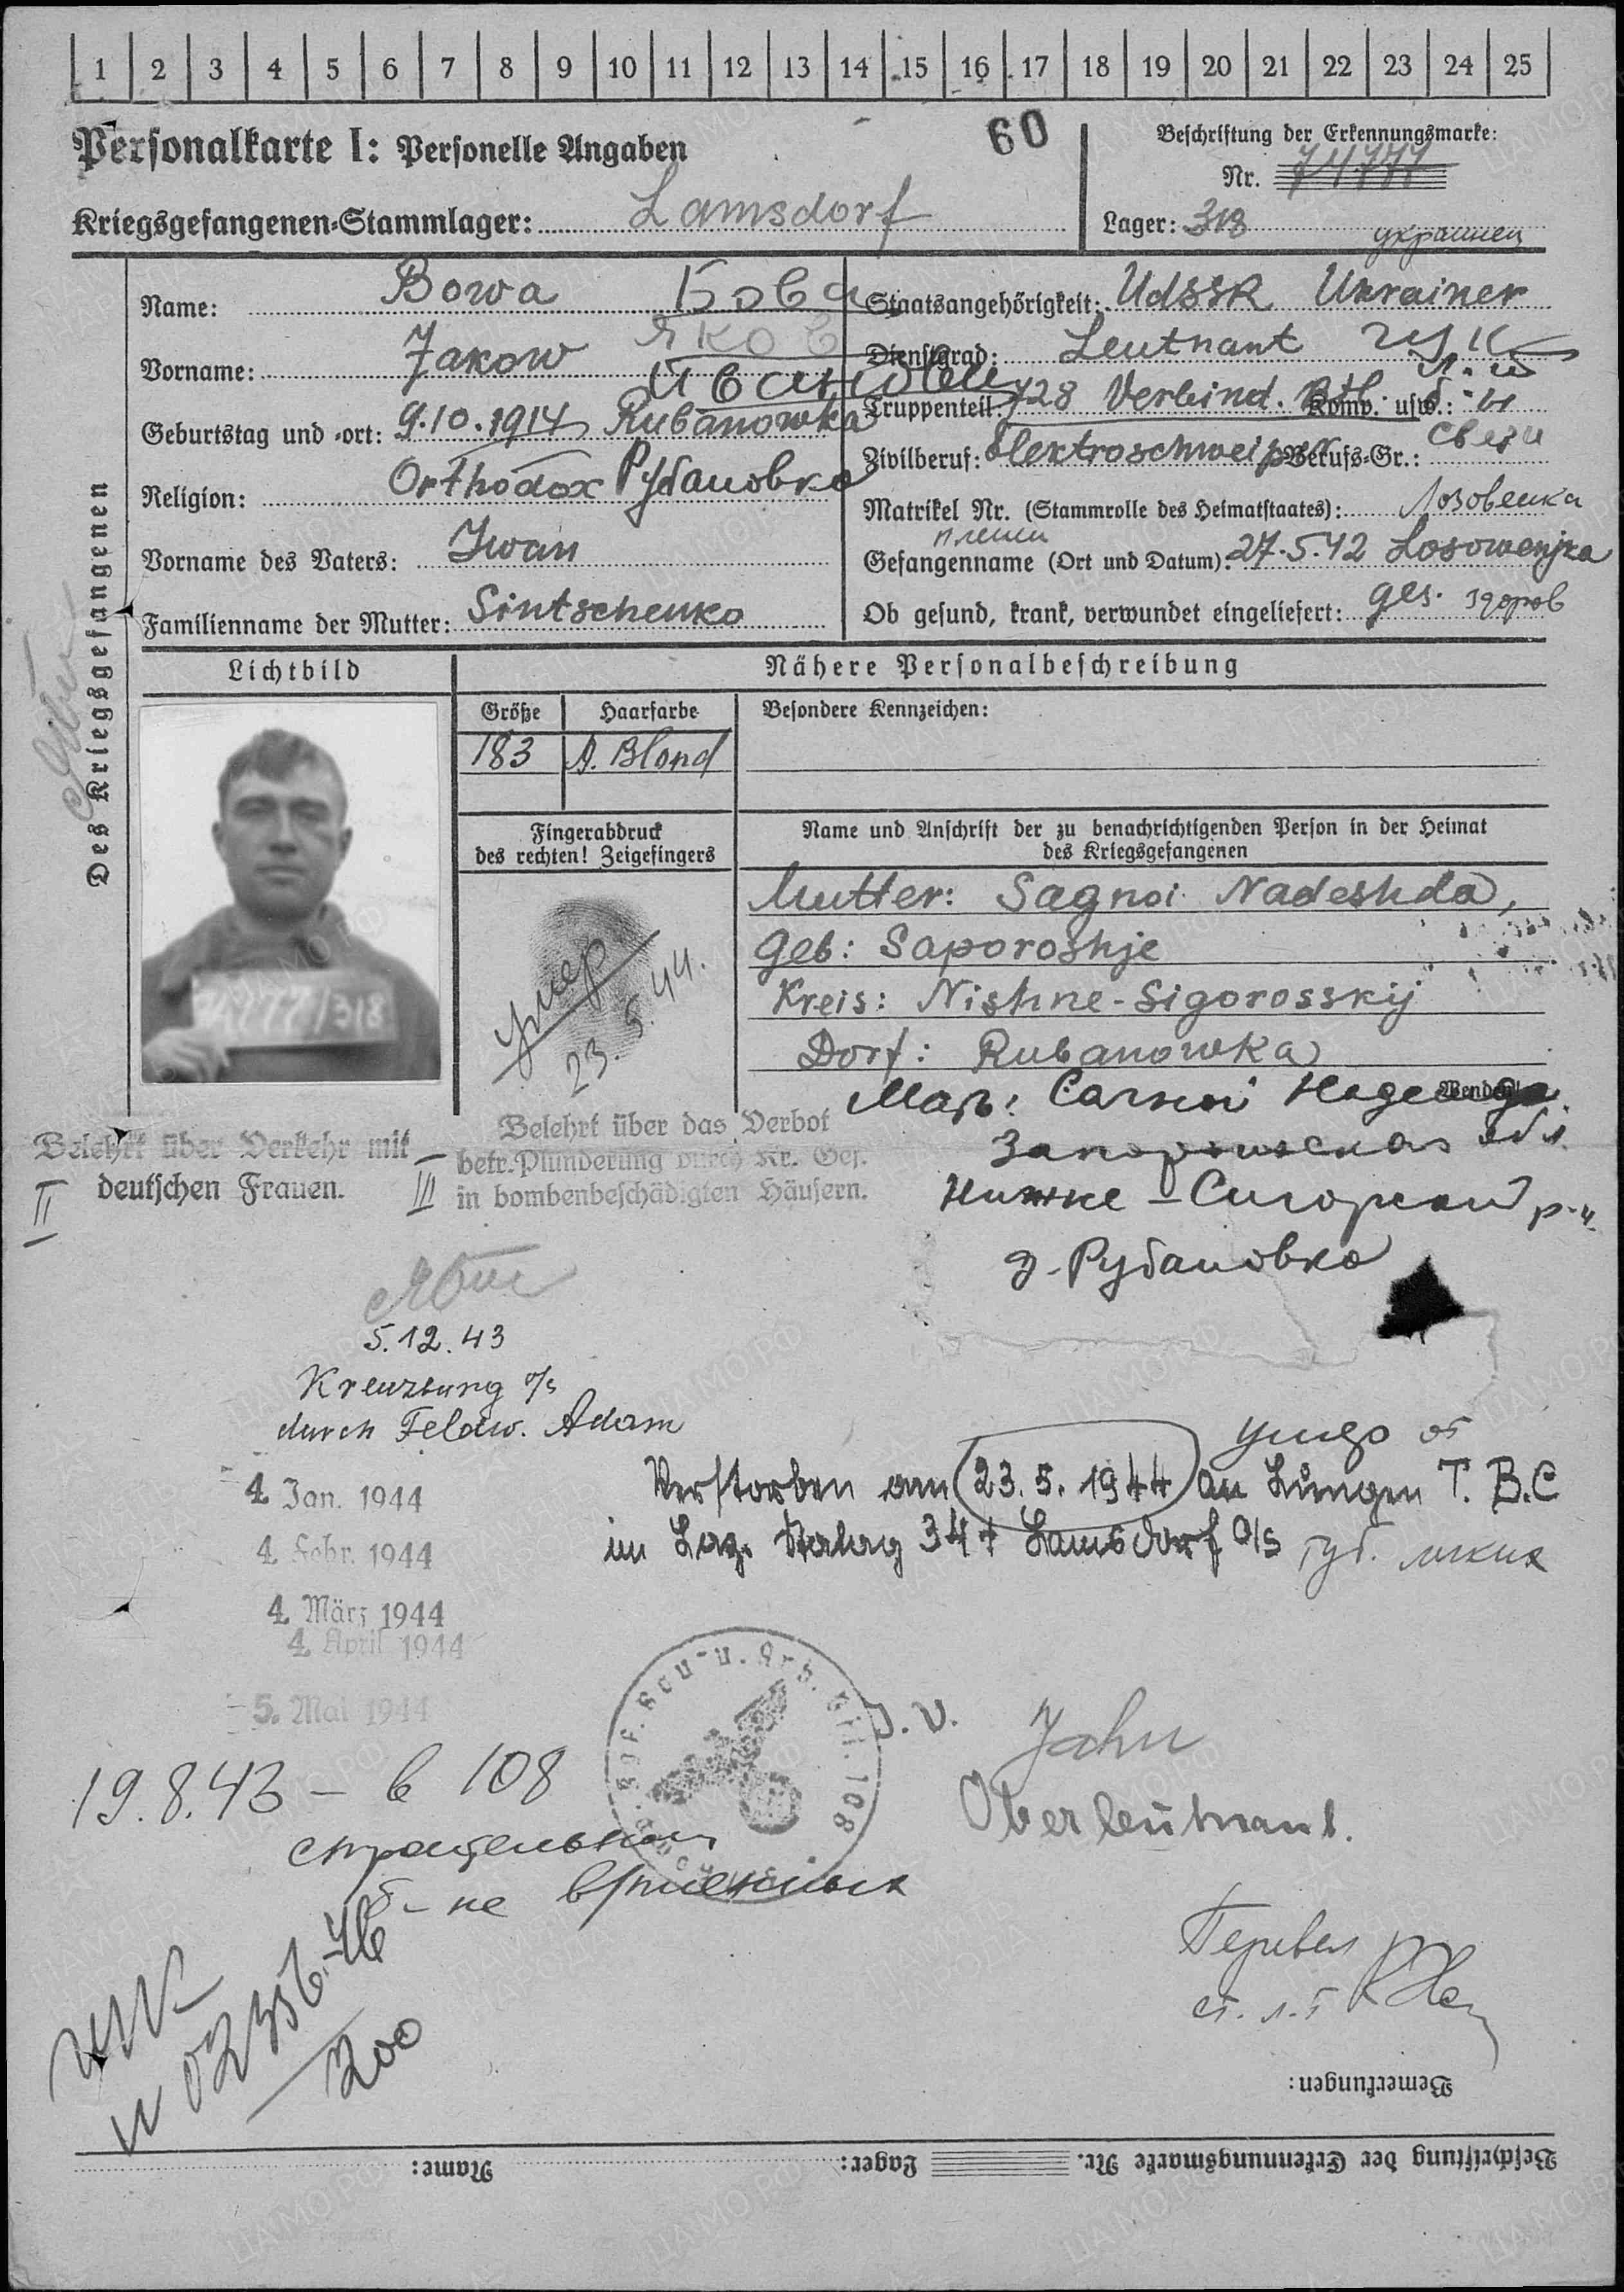 1 2 3 4 5 6 7 8 9 10 11 12 13 14 15 16 17 18 19 20 21 22 23 24 25
Personalkarte I: Personelle Angaben
60
Beschriftung der Erkennungsmarke:
Nr. 74777
Kriegsgefangenen-Stammlager: Lamsdorf
Lager: 318
украинец
Des Kriegsgefangenen
Name: Bowa Бова
Vorname: Jakow Яков
Иванович
Geburtstag und -ort: 9.10.1914 Rubanowka
Religion: Orthodox Рубановка
Vorname des Vaters: Iwan
Familienname der Mutter: Sintschenko
Staatsangehörigkeit: UdSSR Ukrainer
Dienstgrad: Leutnant
Truppenteil: 728 Verbind. Btl. Komp. usw.:
Zivilberuf: Elektroschweißer Berufs-Gr.: связи
Matrikel Nr. (Stammrolle des Heimatstaates): Лозовенка
пленен
Gefangenname (Ort und Datum): 27.5.42 Losowenjka
Ob gesund, krank, verwundet eingeliefert: ges. здоров
Lichtbild
Nähere Personalbeschreibung
Größe Haarfarbe Besondere Kennzeichen:
183 D. Blond
Fingerabdruck
des rechten! Zeigefingers
умер
23.5.44.
Name und Anschrift der zu benachrichtigenden Person in der Heimat
des Kriegsgefangenen
Mutter: Sagnoi Nadeshda,
Geb: Saporoshje
Kreis: Nishne-Sigorosskij
Dorf: Rubanowka
Wenden!
Мать: Сагной Надежда
Запорожская обл.
Нижне-Сигорский р-н
д. Рубановка
74777/318
Belehrt über Verkehr mit
deutschen Frauen.
II
III
Belehrt über das Verbot
betr. Plünderung durch Kr. Gef.
in bombenbeschädigten Häusern.
5.12.43
Kreuzburg O/S
durch Feldw. Adam
4. Jan. 1944
4. Febr. 1944
4. März 1944
4. April 1944
5. Mai 1944
умер от
Verstorben am 23.5.1944 an Lungen T.B.C
im Laz. Stalag 344 Lamsdorf O/S туб. легких
Kgf. Bau- u. Arb. Btl. 108
J.V. Jahn
Oberleutnant.
19.8.43 – в 108
строительный
б-н военнопленных
Перевел
ст. л-т
200
Bemerkungen:
Beschriftung der Erkennungsmarke Nr. Lager: Name: